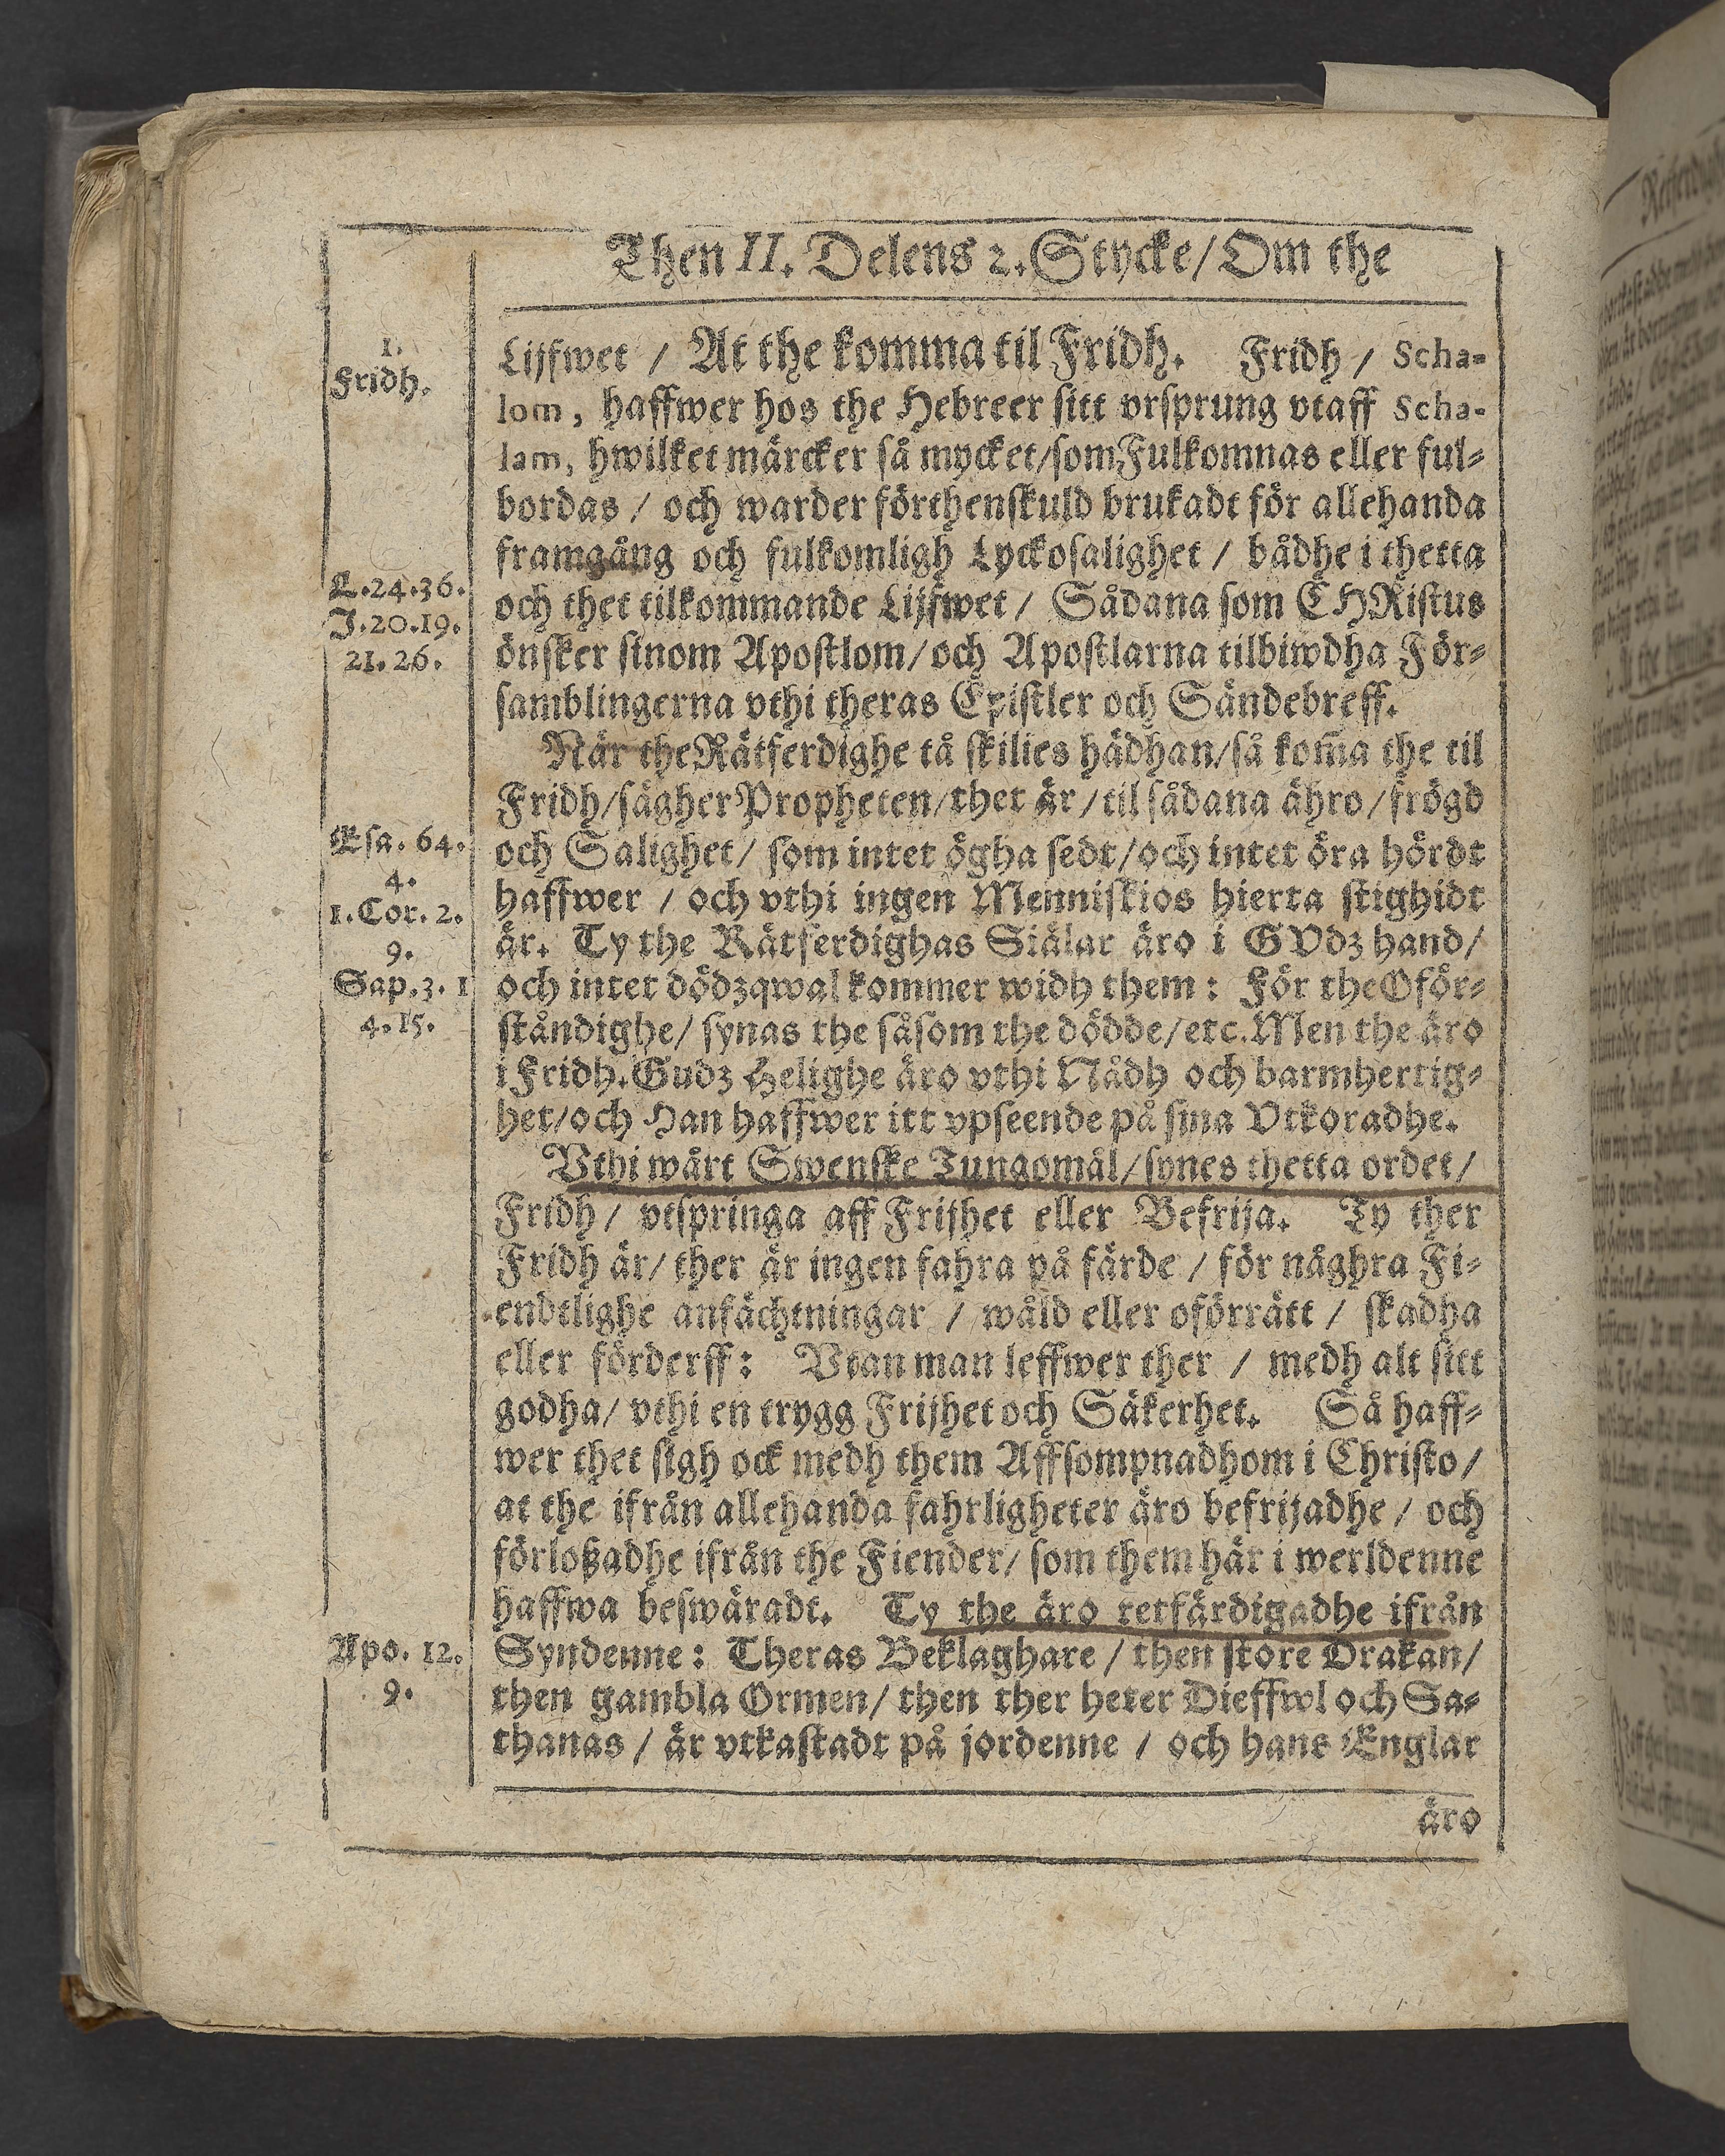 Then II. Delens 2. Stycke/ Om the
1.
Fridh.
Lijfwet / At the komma til Fridh. Fridh / Scha-
lom, haffwer hos the Hebreer sitt vrsprung vtaff Scha-
lam, hwilket märcker så mycket/som Fulkomnas eller ful-
bordas / och warder förthenskuld brukadt för allehanda
framgång och fulkomligh Lyckosalighet / bådhe i thetta
L.24.36.
J.20.19.
21.26.
och thet tilkommande Lijfwet / Sådana som CHRistus
önsker sinom Apostlom/och Apostlarna tilbiwdha För-
samblingerna vthi theras Epistler och Sändebreff.
När the Rätferdighe tå skilies hädhan/så kom̃a the til
Fridh/sägher Propheten/thet är/til sådana ähro/frögd
Esa. 64.
4.
1.Cor. 2.
9.
Sap.3.1
4.15.
och Salighet/ som intet ögha sedt/och intet öra hördt
haffwer / och vthi ingen Menniskios hierta stighidt
är. Ty the Rätferdighas Siälar äro i GVdz hand/
och intet dödzqwal kommer widh them: För the Oför-
ståndighe/ synas the såsom the dödde/etc. Men the äro
i Fridh. Gudz Helighe äro vthi Nådh och barmhertig-
het/och Han haffwer itt vpseende på sina Vtkoradhe.
Vthi wårt Swenske Tungomål/synes thetta ordet/
Fridh/ vtspringa aff Frijhet eller Befrija. Ty ther
Fridh är/ ther är ingen fahra på färde / för någhra Fi-
endtlighe anfächtningar / wåld eller oförrätt / skadha
eller förderff: Vtan man leffwer ther / medh alt sitt
godha/ vthi en trygg Frijhet och Säkerhet. Så haff-
wer thet sigh ock medh them Affsompnadhom i Christo/
at the ifrån allehanda fahrligheter äro befrijadhe / och
förloßadhe ifrån the Fiender/ som them här i werldenne
haffwa beswäradt. Ty the äro retfärdigadhe ifrån
Apo. 12.
9.
Syndenne: Theras Beklaghare / then store Drakan/
then gambla Ormen/ then ther heter Dieffwl och Sa-
thanas / är vtkastadt på jordenne / och hans Englar
äro